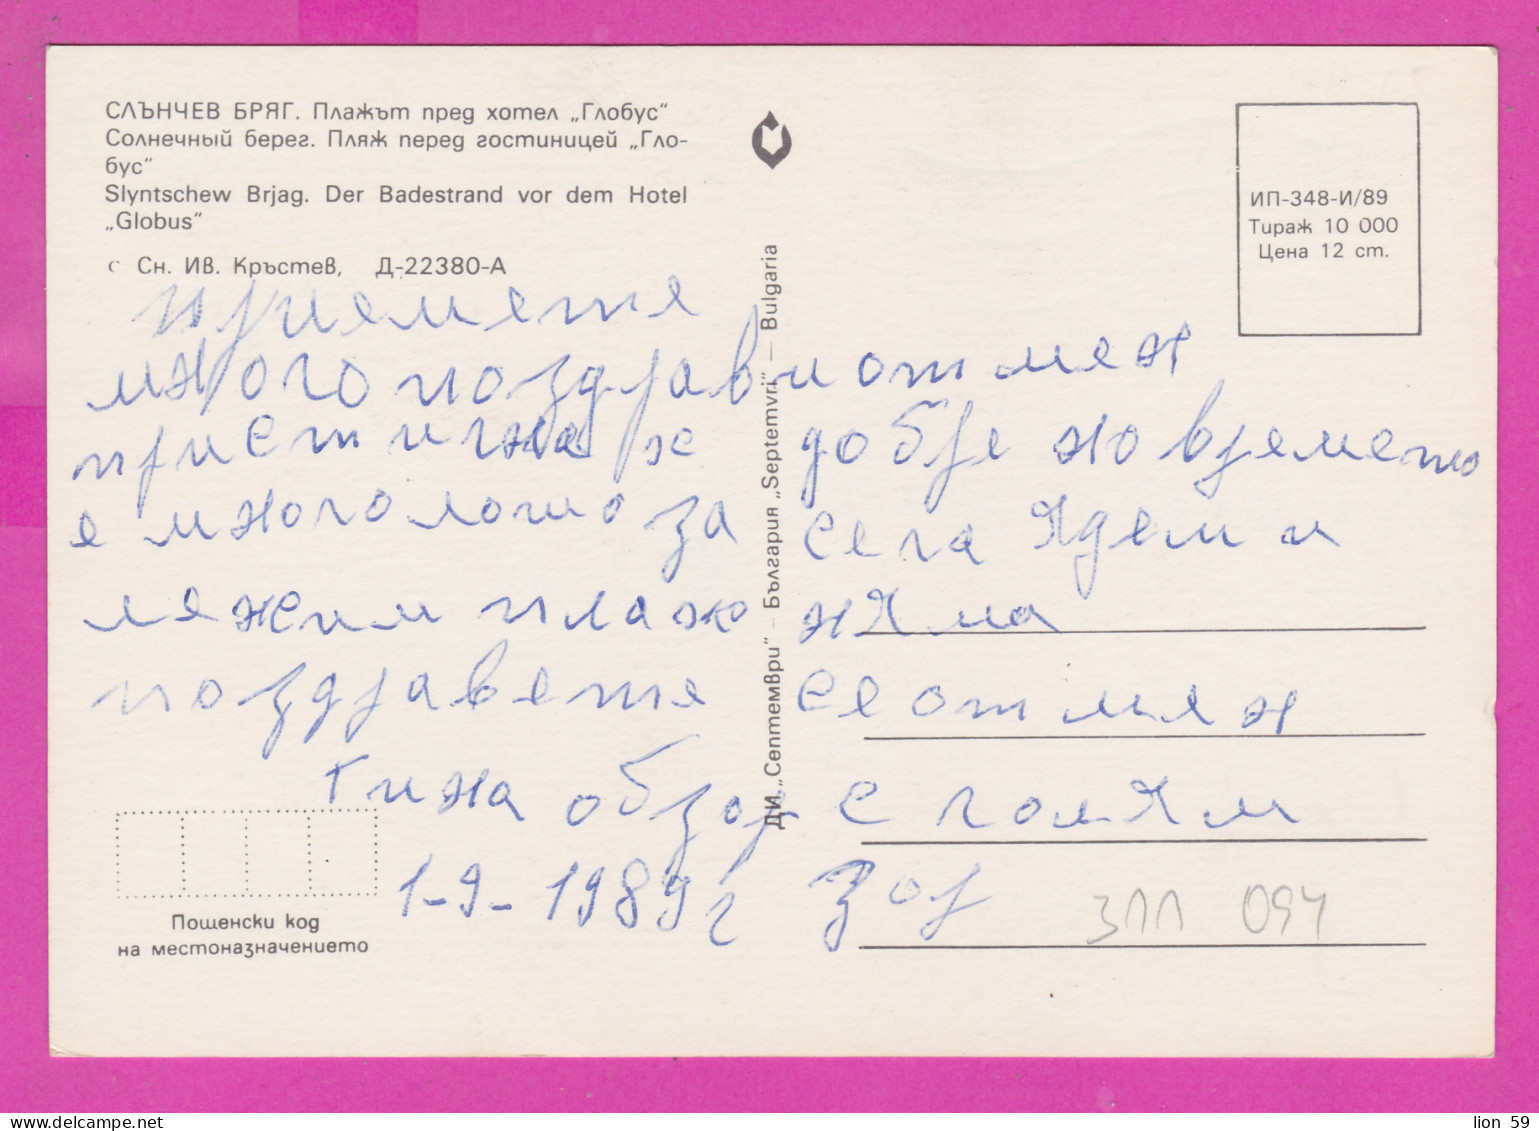 СЛЪНЧЕВ БРЯГ. Плажът пред хотел „Глобус“
Солнечный берег. Пляж перед гостиницей „Гло-
бус“
Slyntschew Brjag. Der Badestrand vor dem Hotel
„Globus“
С Сн. ИВ. Кръстев, Д-22380-А
ИП-348-И/89
Тираж 10 000
Цена 12 ст.
ДИ „Септември“ – България „Septemvri“ – Bulgaria
приемете
много поздрави от мен
пристигна е добре но времето
е много лошо за сега Ядем и
лежим плаж нЯма
поздравете се от мен
Гина обзор с голЯм
1-9-1989г зор
ЗПП 094
Пощенски код
на местоназначението
lion 59